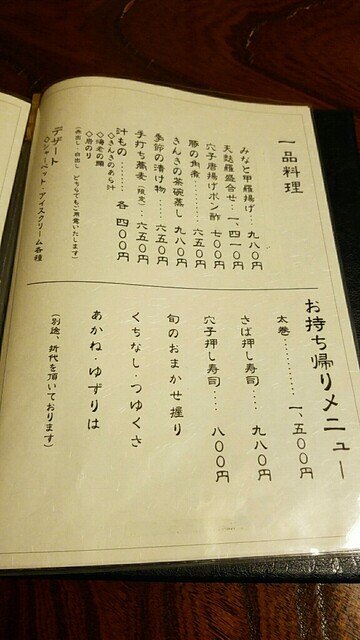 一品料理
みなと甲羅揚げ‥九八〇円
天麩羅盛合せ‥一、四一〇円
穴子唐揚げポン酢 七〇〇円
豚の角煮‥‥‥‥六五〇円
きんきの茶碗蒸し 九八〇円
季節の漬け物‥‥六五〇円
手打ち蕎麦(限定)‥六五〇円
汁もの‥‥‥‥各 四〇〇円
◇きんきのあら汁
◇海老の頭
◇岩のり
(赤出し・白出し どちらでもご用意いたします)
デザート
◇シャーベット・アイスクリーム各種
お持ち帰りメニュー
太巻‥‥‥‥‥一、五〇〇円
さば押し寿司‥‥九八〇円
穴子押し寿司‥‥八〇〇円
旬のおまかせ握り
くちなし・つゆくさ
あかね・ゆずりは
(別途、折代を頂いております)